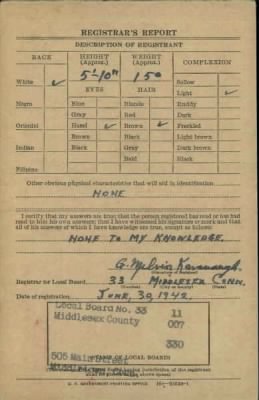 REGISTRAR'S REPORT
DESCRIPTION OF REGISTRANT
RACE HEIGHT (Approx.) WEIGHT (Approx.) COMPLEXION
White ✓ 5'-10" 150 Sallow
EYES HAIR Light ✓
Negro Blue Blonde Ruddy
Gray Red Dark
Oriental Hazel ✓ Brown ✓ Freckled
Brown Black Light brown
Indian Black Gray Dark brown
Bald Black
Filipino
Other obvious physical characteristics that will aid in identification
NONE
I certify that my answers are true; that the person registered has read or has had
read to him his own answers; that I have witnessed his signature or mark and that
all of his answers of which I have knowledge are true, except as follows:
NONE TO MY KNOWLEDGE.
G. Melvin Kavanaugh
Registrar for Local Board 33 MIDDLESEX CONN.
Date of registration JUNE, 30, 1942.
Local Board No. 33 11
Middlesex County 007
330
505 Main Street
(STAMP OF LOCAL BOARD)
U. S. GOVERNMENT PRINTING OFFICE